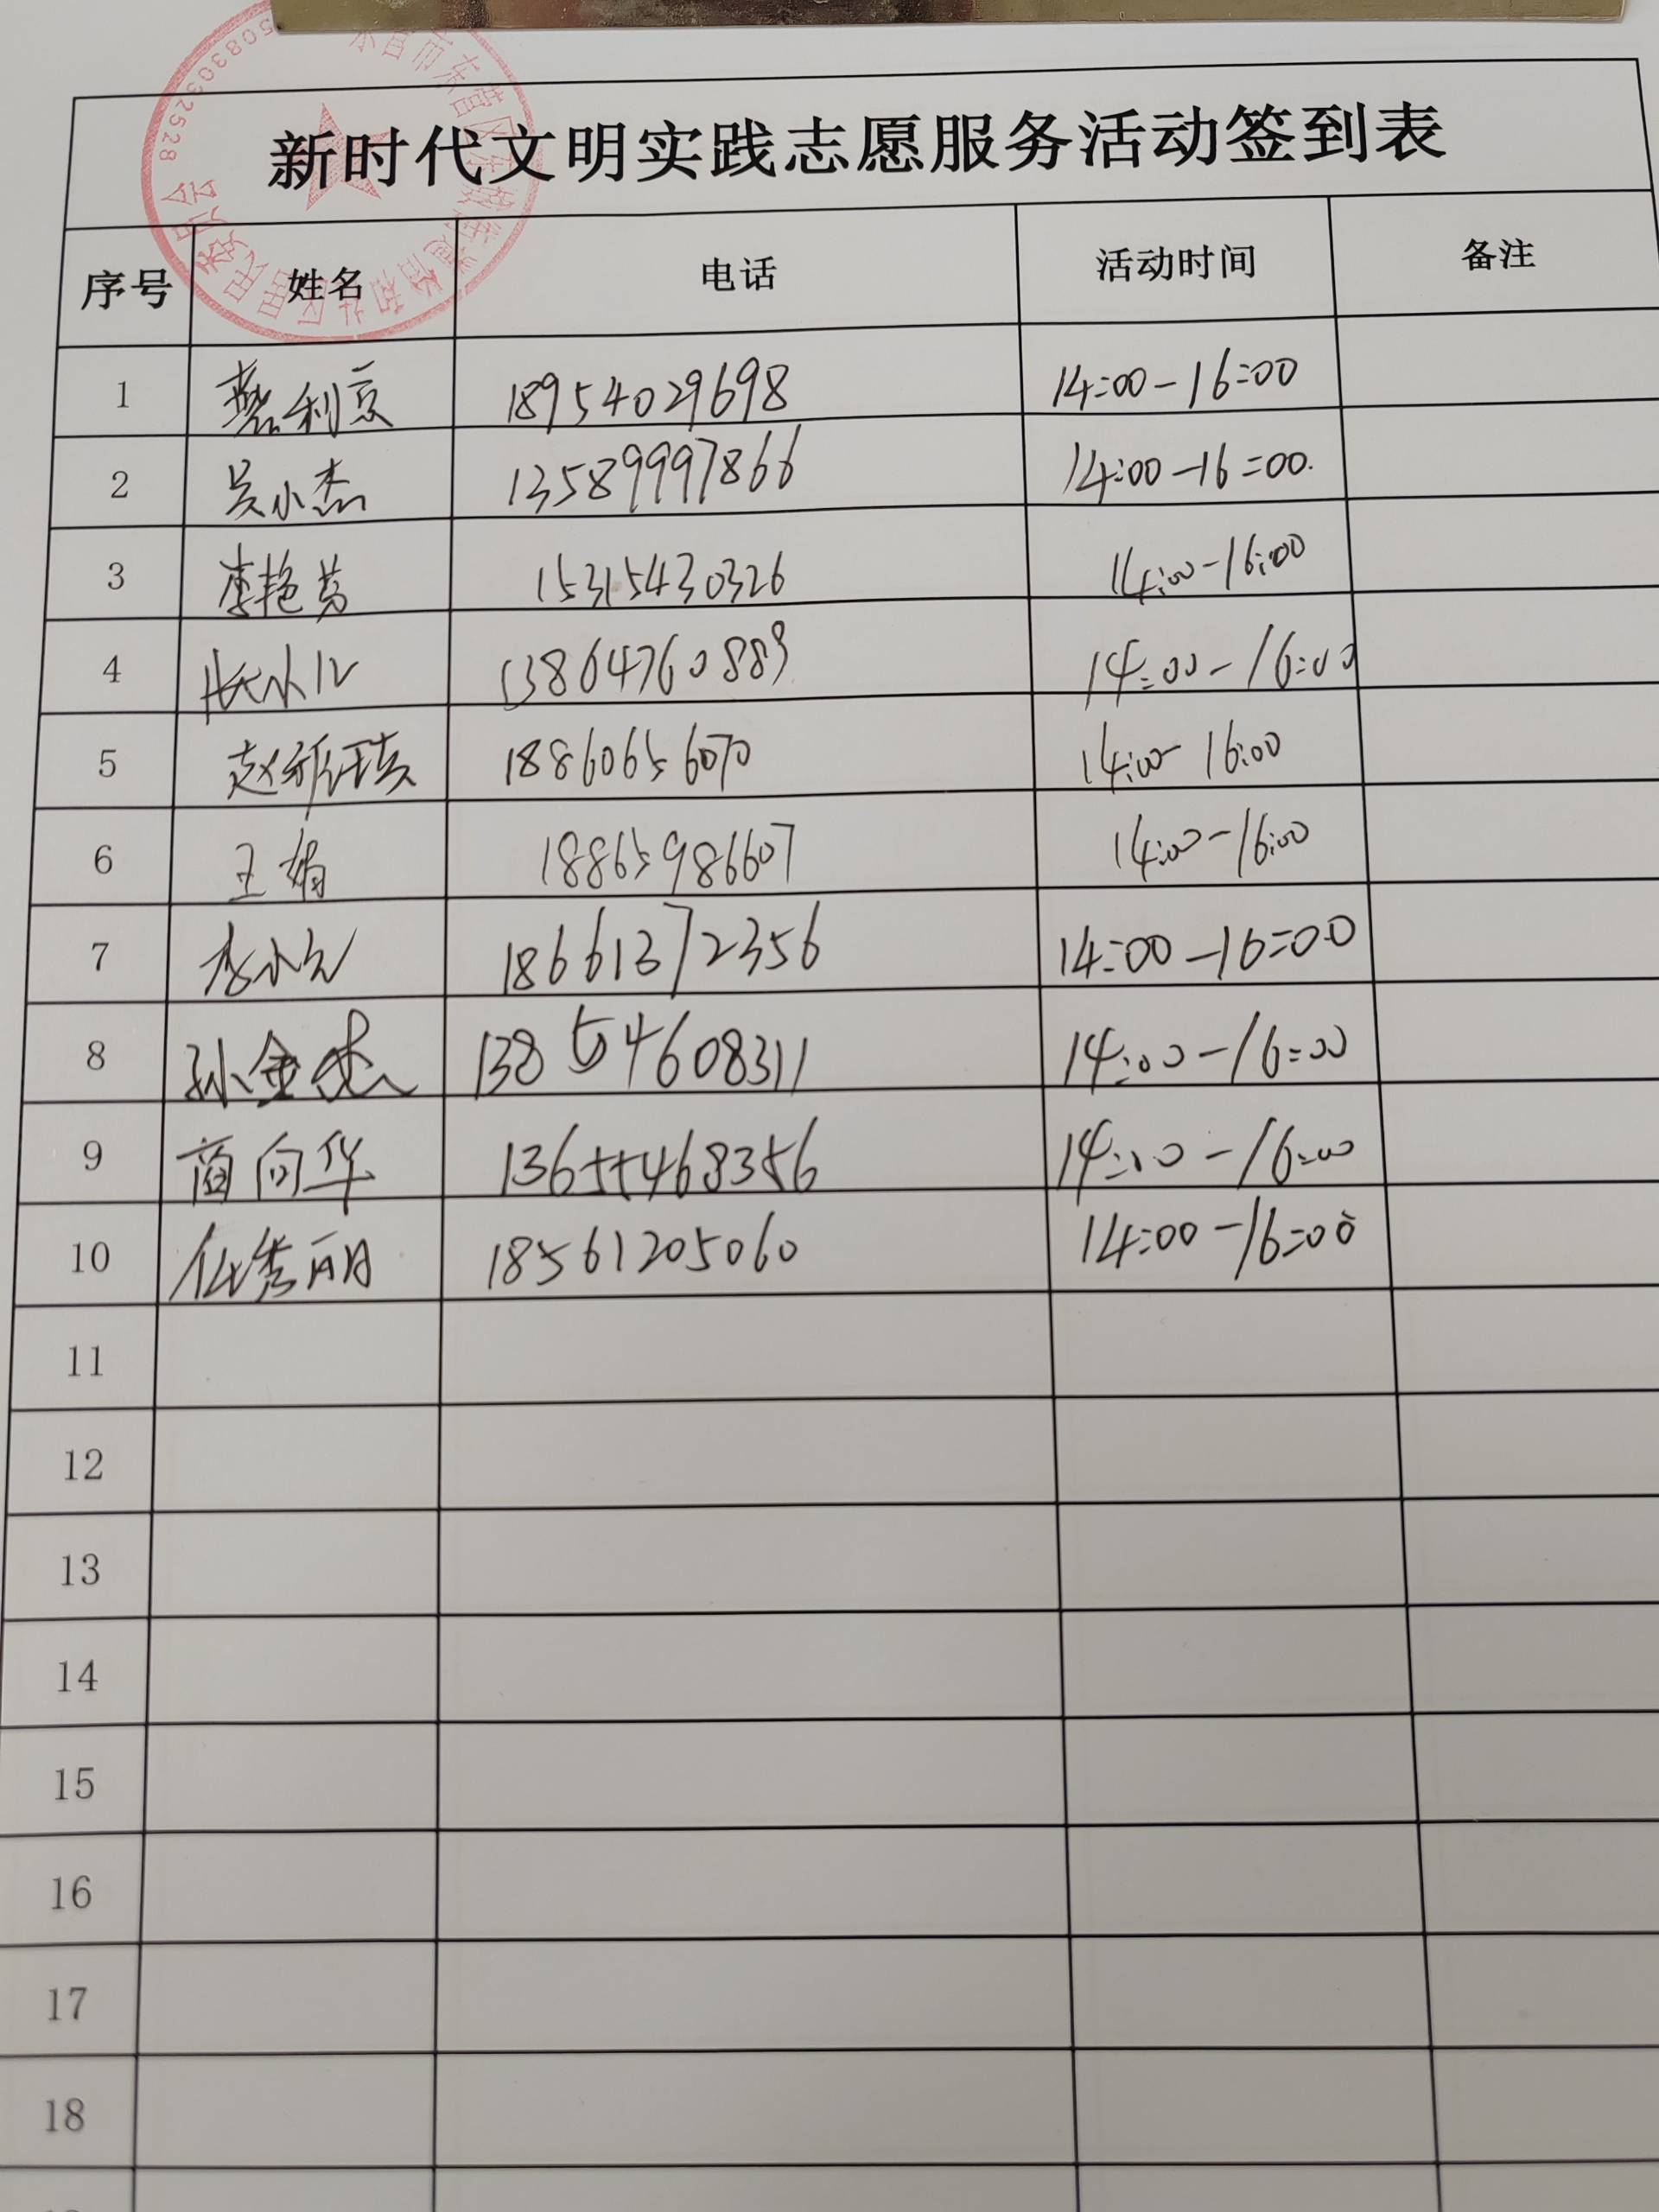 新时代文明实践志愿服务活动签到表
序号 姓名 电话 活动时间 备注
1 燕利京 18954029698 14:00-16:00
2 吴小杰 13589997866 14:00-16:00.
3 李艳芳 15315430326 14:00-16:00
4 13864760889 14:00-16:00
5 18860656070 14:00-16:00
6 王娟 18865986607 14:00-16:00
7 李小 18661372356 14:00-16:00
8 孙金 13854608311 14:00-16:00
9 商向华 13655468356 14:00-16:00
10 秀丽 18561205060 14:00-16:00
11
12
13
14
15
16
17
18